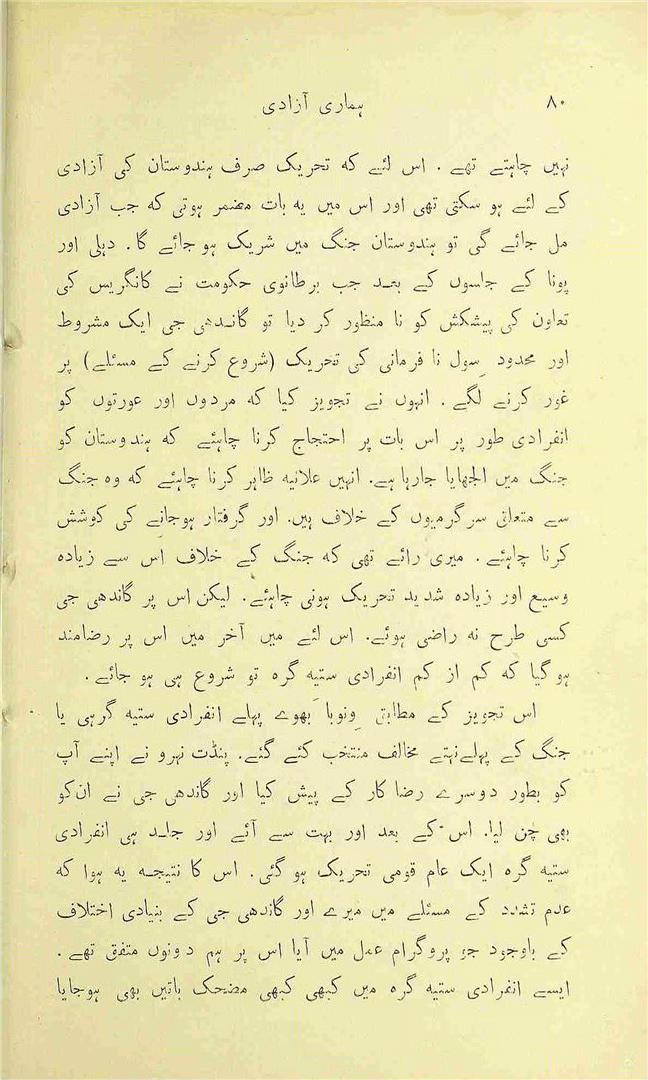 ۸۰ ہماری آزادی
نہیں چاہتے تھے ۔ اس لئے کہ تحریک صرف ہندوستان کی آزادی
کے لئے ہو سکتی تھی اور اس میں یہ بات مضمر ہوتی کہ جب آزادی
مل جائے گی تو ہندوستان جنگ میں شریک ہو جائے گا۔ دہلی اور
پونا کے جلسوں کے بعد جب برطانوی حکومت نے کانگریس کی
تعاون کی پیشکش کو نا منظور کر دیا تو گاندھی جی ایک مشروط
اور محدود سِول نا فرمانی کی تحریک (شروع کرنے کے مسئلے) پر
غور کرنے لگے ۔ انہوں نے تجویز کیا کہ مردوں اور عورتوں کو
انفرادی طور پر اس بات پر احتجاج کرنا چاہئے کہ ہندوستان کو
جنگ میں الجھایا جارہا ہے۔ انہیں علانیہ ظاہر کرنا چاہئے کہ وہ جنگ
سے متعلق سرگرمیوں کے خلاف ہیں۔ اور گرفتار ہوجانے کی کوشش
کرنا چاہئے ۔ میری رائے تھی کہ جنگ کے خلاف اس سے زیادہ
وسیع اور زیادہ شدید تحریک ہونی چاہئے۔ لیکن اس پر گاندھی جی
کسی طرح نہ راضی ہوئے۔ اس لئے میں آخر میں اس پر رضامند
ہو گیا کہ کم از کم انفرادی ستیہ گرہ تو شروع ہی ہو جائے۔
اس تجویز کے مطابق وِنوبا بھوے پہلے انفرادی ستیہ گرہی یا
جنگ کے پہلے نہتے مخالف منتخب کئے گئے۔ پنڈت نہرو نے اپنے آپ
کو بطور دوسرے رضا کار کے پیش کیا اور گاندھی جی نے ان کو
بھی چن لیا۔ اس کے بعد اور بہت سے آئے اور جلد ہی انفرادی
ستیہ گرہ ایک عام قومی تحریک ہو گئی۔ اس کا نتیجہ یہ ہوا کہ
عدم تشدد کے مسئلے میں میرے اور گاندھی جی کے بنیادی اختلاف
کے باوجود جو پروگرام عمل میں آیا اس پر ہم دونوں متفق تھے ۔
ایسے انفرادی ستیہ گرہ میں کبھی کبھی مضحک باتیں بھی ہوجایا